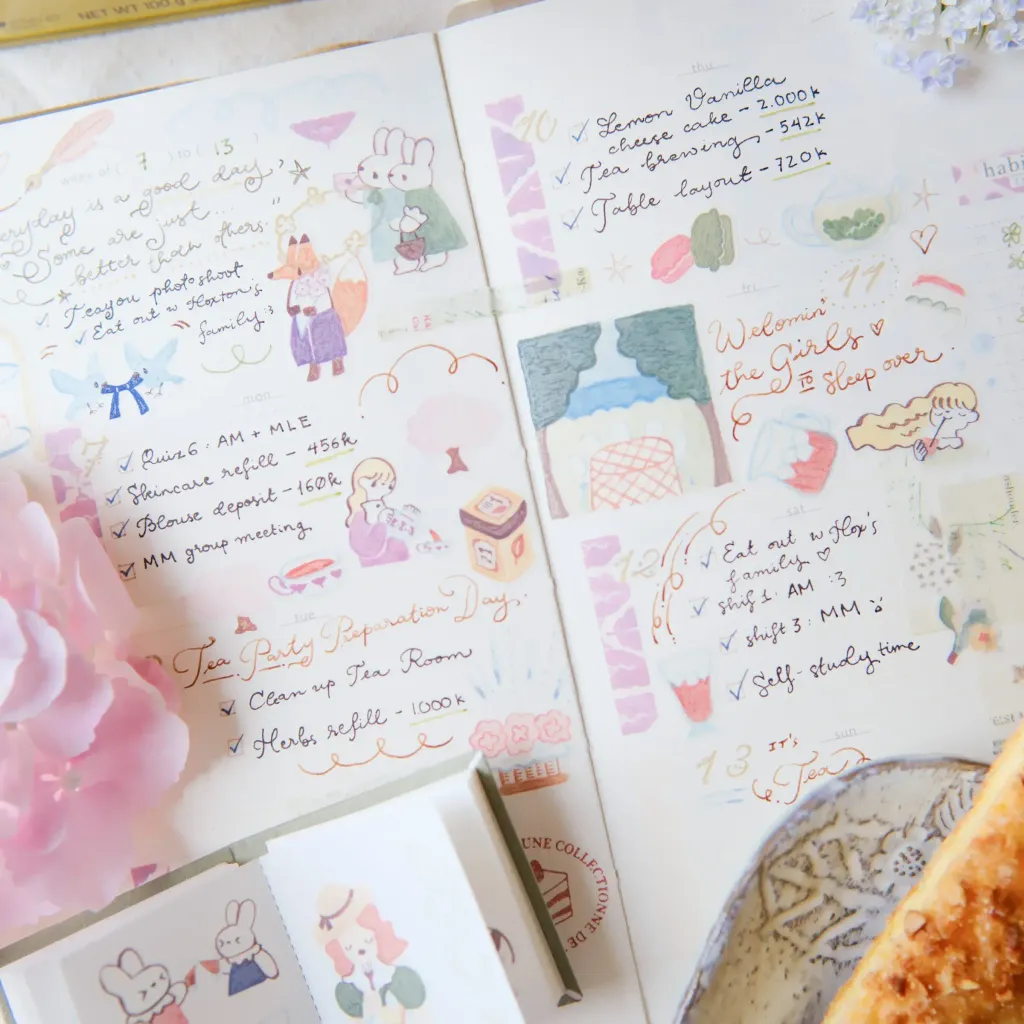 NET WT 100 g
week of ( 7 ) to ( 13 )
everyday is a good day,
Some are just...
better than others."
Teayou photoshoot
Eat out w Hoxton's
family :3
mon
Quiz 6 : AM + MLE
Skincare refill - 456k
Blouse deposit - 160k
MM group meeting
tue
Tea Party Preparation Day.
Clean up Tea Room
Herbs refill - 1.000k
thu
10
Lemon Vanilla
cheese cake - 2.000k
Tea brewing - 542k
Table layout - 720k
habi
fri
11
Welomin'
the Girls ♡
to Sleep over.
sat
12
Eat out w Hox's
family ♡
shift 1 : AM :3
shift 3 : MM
Self-study time
sun
13
IT'S
Tea
UNE COLLECTIONNE DE